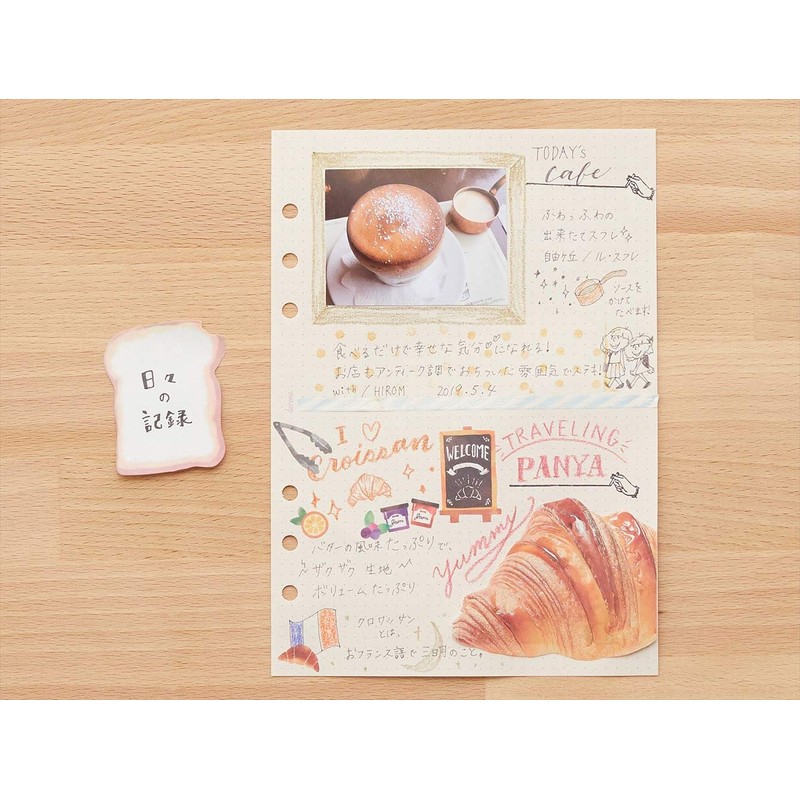 日々
の
記録
TODAY's
Cafe
ふわっふわの
出来たてスフレ
自由ヶ丘/ル・スフレ
ソースを
かけて
たべます!
食べるだけで幸せな気分になれる!
お店もアンティーク調でおちついた雰囲気でステキ!
with/HIROM 2019.5.4
I ♡
Croissan
WELCOME
TRAVELING
PANYA
yummy
バターの風味たっぷりで、
ザクザク生地
ボリュームたっぷり
クロワッサン
とは、
おフランス語で三日月のこと。